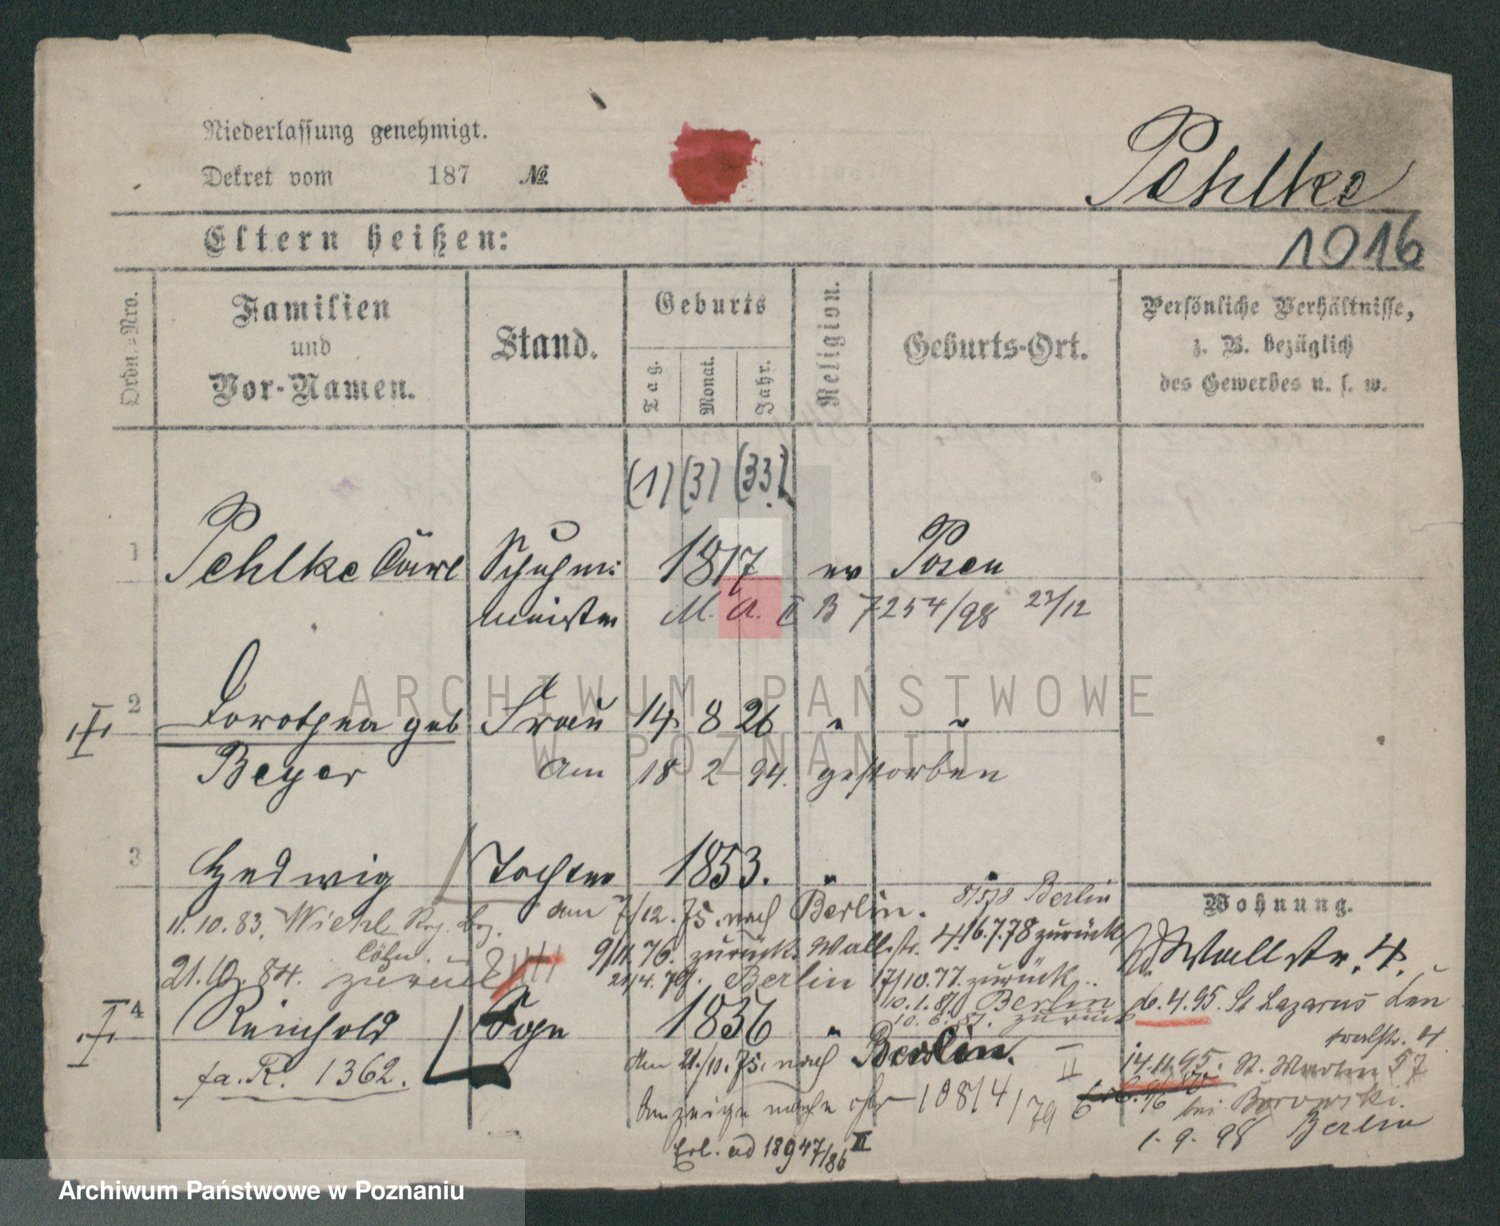 Niederlassung genehmigt.
Dekret vom 187 №
Pehlke
Eltern heißen:
1016
Ordn.-Nro.
Familien und Vor-Namen.
Stand.
Geburts
Tag.
Monat.
Jahr.
Religion.
Geburts-Ort.
Persönliche Verhältnisse,
z. B. bezüglich
des Gewerbes u. s. w.
(1) (3) (33)
1 Pehlke Carl Schuhm: 1817 ev Posen
meister M. A. II B 7254/98 22/12
ARCHIWUM PAŃSTWOWE
W POZNANIU
2 Dorothea geb Frau 14. 8 26 " "
Beyer am 18 2 94. gestorben
3 Hedwig Tochter 1853. " "
11.10.83. Wiehl Rg. Bez. Cöln. am 7/12.75. nach Berlin. 8/5 78 Berlin
Wohnung.
9/11.76. zurück. Wallstr. 4. 16.7.78 zurück
21.10.84. zurück 21/4.79. Berlin 17/10.77. zurück
Wallstr. 4.
10.1.80 Berlin
10.6.81. zurück
6.4.95. St Lazarus
4 Reinhold Sohn 1856 "
am 21./10.75. nach Berlin.
fa. R. 1362.
14.11.95. St. Martin 57
Anzeige 10814/79
bei Borowski.
Erl. ad 18947/86 II
1.9.98 Berlin
Archiwum Państwowe w Poznaniu